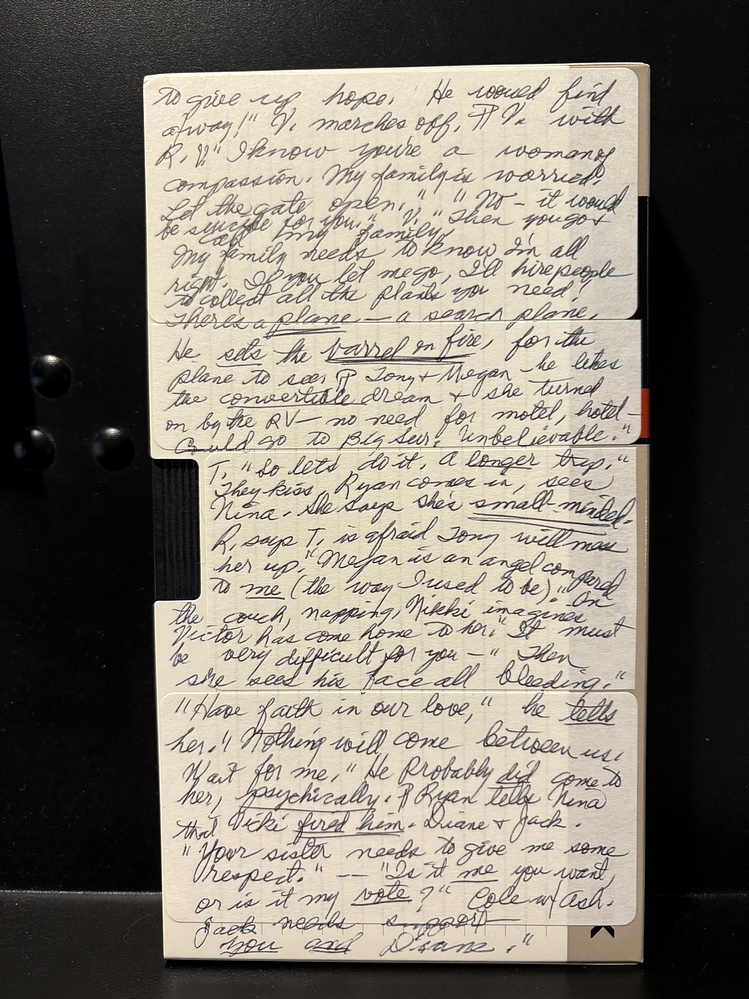 to give up hope. He would find
a way!" V. marches off. ¶ V. with
R. V." I know you're a woman of
compassion. My family is worried.
Let the gate open." "No – it would
be suicide for you." V. "Then you go +
call my family.
My family needs to know I'm all
right. If you let me go, I'll hire people
to collect all the plants you need.
There's a plane – a search plane.
He sets the barrel on fire, for the
plane to see. ¶ Tony + Megan – he likes
the convertible dream + she turned
on by the RV – no need for motel, hotel –
Could go to Big Sur. Unbelievable."
T. "So lets do it. A longer trip."
They kiss. Ryan comes in, sees
Nina. She says she's small-minded.
R. says T. is afraid Tony will mess
her up. "Megan is an angel compared
to me (the way I used to be)." On
the couch, napping, Nikki imagines
Victor has come home to her. "It must
be very difficult for you –" Then
she sees his face all bleeding."
"Have faith in our love," he tells
her. "Nothing will come between us.
Wait for me." He Probably did come to
her, psychically. ¶ Ryan tells Nina
that Vicki fired him. Diane + Jack.
"Your sister needs to give me some
respect." –– "Is it me you want,
or is it my vote?" Cole w/ Ash.
Jack needs support
you and Diane."